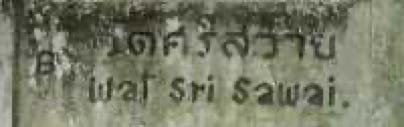 วัดศรีสวาย
Wat Sri Sawai.